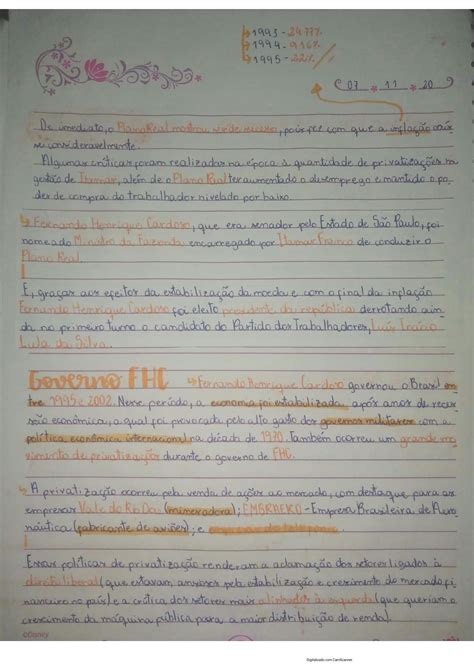 ↳1993 - 2477%
↳1994 - 916%
↳1995 - 22%
07 11 20
De imediato, o Plano Real mostrou ser de sucesso, pois fez com que a inflação caís
se consideravelmente.
Algumas críticas foram realizadas na época à quantidade de privatizações na
gestão de Itamar, além de o Plano Real ter aumentado o desemprego e mantido o po
der de compra do trabalhador nivelado por baixo.
↳ Fernando Henrique Cardoso, que era senador pelo Estado de São Paulo, foi
nomeado Ministro da Fazenda encarregado por Itamar Franco de conduzir o
Plano Real.
E, graças aos efeitos da estabilização da moeda e com o final da inflação
Fernando Henrique Cardoso foi eleito presidente da república derrotando ain
da no primeiro turno o candidato do Partido dos Trabalhadores, Luís Inácio
Lula da Silva.
Governo FHC ↳ Fernando Henrique Cardoso governou o Brasil en
tre 1995 e 2002. Nesse período, a economia foi estabilizada, após anos de reces
são econômica, a qual foi provocada pelo alto gasto dos governos militares com a
política econômica internacional na década de 1970. Também ocorreu um grande mo
vimento de privatização durante o governo de FHC.
↳ A privatização ocorreu pela venda de ações ao mercado, com destaque para as
empresas Vale do Rio Doce (mineradora); EMBRAER - Empresa Brasileira de Aero
náutica (fabricante de aviões); e
Essas políticas de privatização renderam a aclamação dos setores ligados à
direita liberal (que estavam ansiosos pela estabilização e crescimento do mercado fi
nanceiro no país) e a crítica dos setores mais alinhados à esquerda (que queriam o
crescimento da máquina pública para a maior distribuição de renda).
©Disney
Digitalizado com CamScanner